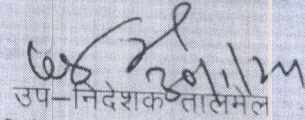 30/1/24
उप–निदेशक तालमेल